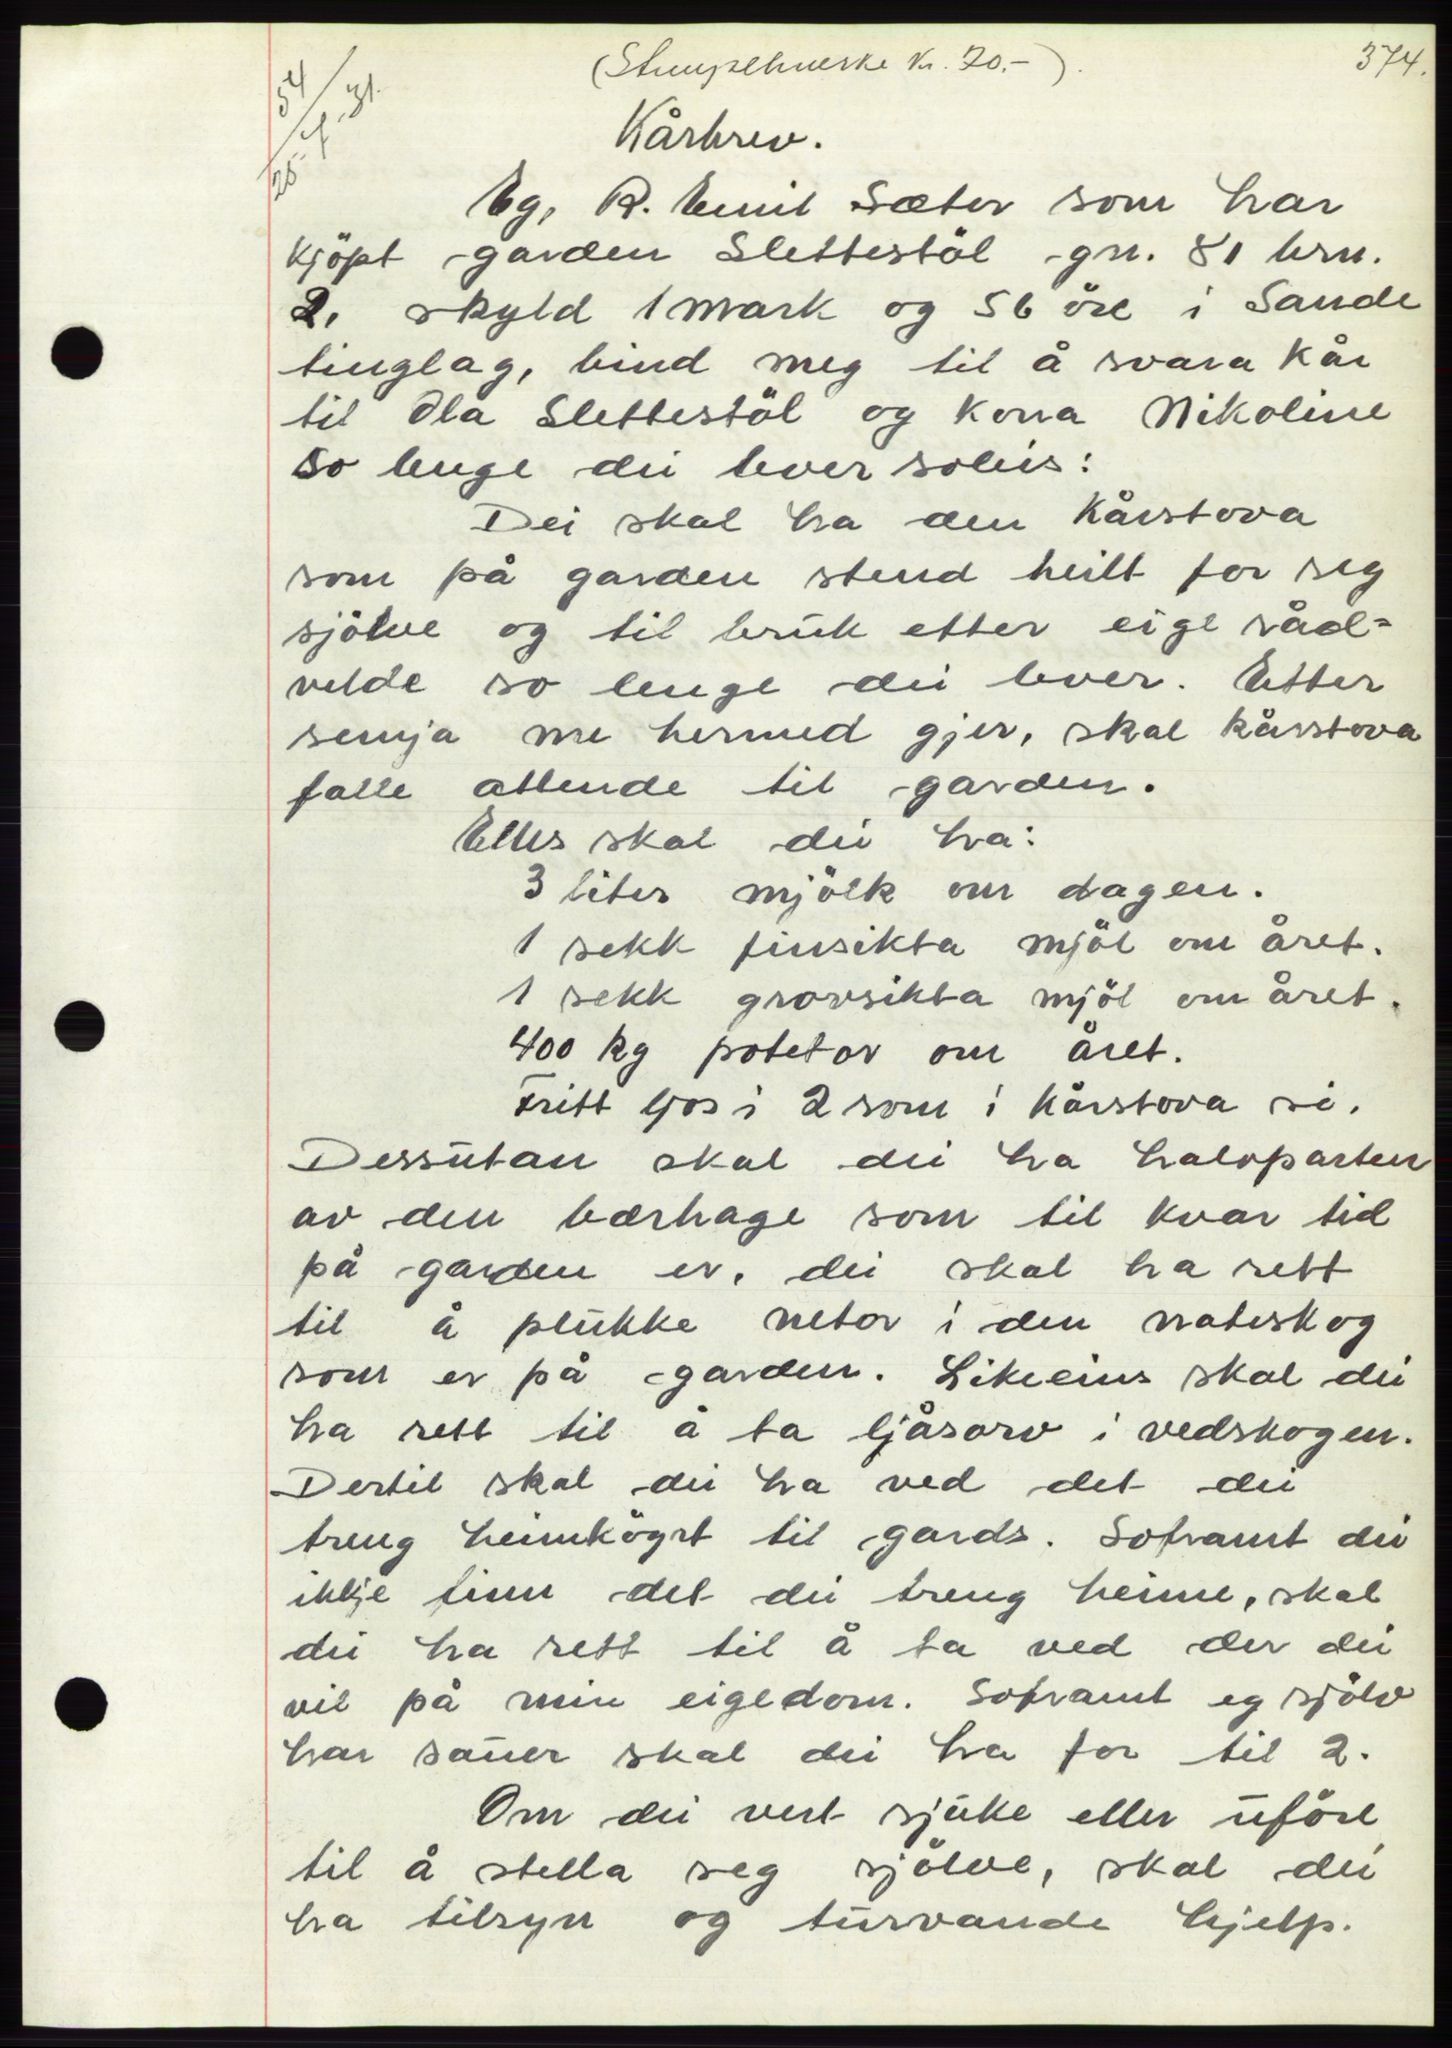 (Stempelmerke kr. 70.-). 374.
54/
25-4-31.
Kårbrev.
Eg, R. Emil Sæter som har
kjöpt garden Slettestöl gn. 81 brn.
2, skyld 1 mark og 56 öre i Sande
tinglag, bind meg til å svara kår
til Ola Slettestöl og kona Nikoline
so lenge dei lever soleis:
Dei skal ha den kårstova
som på garden stend heilt for seg
sjölve og til bruk etter eige råd=
velde so lenge dei lever. Etter
semja me hermed gjer, skal kårstova
falle attende til garden.
Elles skal dei ha:
3 liter mjölk om dagen.
1 sekk finsikta mjöl om året.
1 sekk grovsikta mjöl om året.
400 kg potetor om året.
Fritt ljos i 2 rom i kårstova si.
Dessutan skal dei ha halvparten
av den bærhage som til kvar tid
på garden er. dei skal ha rett
til å plukke netor i den nateskog
som er på garden. Likeeins skal dei
ha rett til å ta ljåsorv i vedskogen.
Dertil skal dei ha ved det dei
treng heimkögrt til gards. Soframt dei
ikkje finn det dei treng heime, skal
dei ha rett til å ta ved der dei
vil på min eigedom. Soframt eg sjölv
har sauer skal dei ha for til 2.
Om dei vert sjuke eller uföre
til å stella seg sjölve, skal dei
ha tilsyn og turvande hjelp.